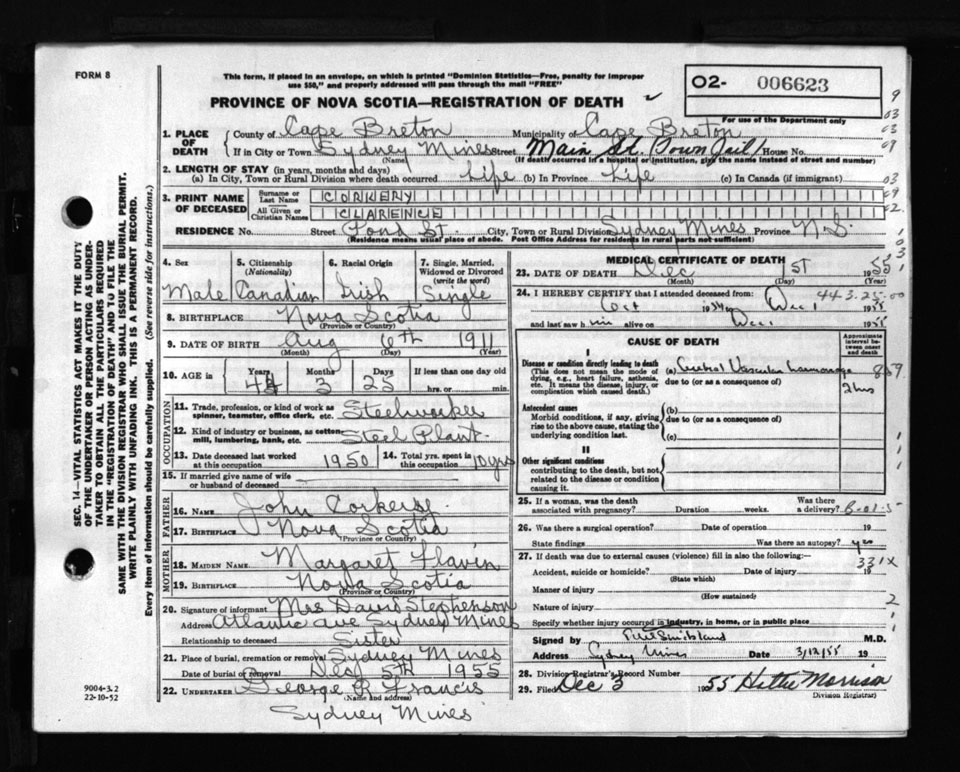 FORM 8
This form, if placed in an envelope, on which is printed "Dominion Statistics—Free, penalty for improper
use $50," and properly addressed will pass through the mail "FREE"
PROVINCE OF NOVA SCOTIA—REGISTRATION OF DEATH
02- 006623
For use of the Department only
1. PLACE OF DEATH
County of Cape Breton Municipality of Cape Breton
If in City or Town Sydney Mines Street Main St. (Town Jail) House No.
(Name) (If death occurred in a hospital or institution, give the name instead of street and number)
2. LENGTH OF STAY (in years, months and days)
(a) In City, Town or Rural Division where death occurred Life (b) In Province Life (c) In Canada (if immigrant)
3. PRINT NAME OF DECEASED
Surname or Last Name CORKERY
All Given or Christian Names CLARENCE
RESIDENCE No. Street Pond St. City, Town or Rural Division Sydney Mines Province N.S.
(Residence means usual place of abode. Post Office Address for residents in rural parts not sufficient)
4. Sex Male
5. Citizenship (Nationality) Canadian
6. Racial Origin Irish
7. Single, Married, Widowed or Divorced (write the word) Single
8. BIRTHPLACE Nova Scotia
(Province or Country)
9. DATE OF BIRTH Aug 6th 1911
(Month) (Day) (Year)
10. AGE in Years 44 Months 3 Days 25 If less than one day
hrs. or min.
OCCUPATION
11. Trade, profession, or kind of work as spinner, teamster, office clerk, etc. Steelworker
12. Kind of industry or business, as cotton-mill, lumbering, bank, etc. Steel Plant
13. Date deceased last worked at this occupation 1950
14. Total yrs. spent in this occupation 10 yrs
15. If married give name of wife or husband of deceased
FATHER
16. NAME John Corkery
17. BIRTHPLACE Nova Scotia
(Province or Country)
MOTHER
18. MAIDEN NAME Margaret Flavin
19. BIRTHPLACE Nova Scotia
(Province or Country)
20. Signature of informant Mrs David Stephenson
Address Atlantic Ave Sydney Mines
Relationship to deceased Sister
21. Place of burial, cremation or removal Sydney Mines
Date of burial or removal Dec 5th 1955
22. UNDERTAKER George R Francis
(Name and address)
Sydney Mines
MEDICAL CERTIFICATE OF DEATH
23. DATE OF DEATH Dec 1st 1955
(Month) (Day) (Year)
24. I HEREBY CERTIFY that I attended deceased from:
443.25.00
Oct 1954 Dec 1 1955
and last saw him alive on Dec 1 1955
CAUSE OF DEATH
Approximate interval between onset and death
I
Disease or condition directly leading to death
(This does not mean the mode of dying, e.g., heart failure, asthenia, etc. It means the disease, injury, or complication which caused death.)
(a) Cerebral Vascular haemorrhage
due to (or as a consequence of)
2 hrs
Antecedent causes
Morbid conditions, if any, giving rise to the above cause, stating the underlying condition last.
(b)
due to (or as a consequence of)
(c)
II
Other significant conditions
contributing to the death, but not related to the disease or condition causing it.
25. If a woman, was the death associated with pregnancy? Duration weeks. Was there a delivery?
26. Was there a surgical operation? Date of operation 19
State findings Was there an autopsy? yes
27. If death was due to external causes (violence) fill in also the following:—
331X
Accident, suicide or homicide? Date of injury 19
(State which)
Manner of injury
(How sustained)
Nature of injury
Specify whether injury occurred in industry, in home, or in public place
Signed by M.D.
Address Sydney Mines Date 3/12/55 19
28. Division Registrar's Record Number
29. Filed Dec 3 1955 Hattie Morrison
Division Registrar)
9004-3.2
22-10-52
SEC. 14—VITAL STATISTICS ACT MAKES IT THE DUTY
OF THE UNDERTAKER OR PERSON ACTING AS UNDER-
TAKER TO OBTAIN ALL THE PARTICULARS REQUIRED
IN THE "REGISTRATION OF DEATH" AND TO FILE THE
SAME WITH THE DIVISION REGISTRAR WHO SHALL ISSUE THE BURIAL PERMIT.
WRITE PLAINLY WITH UNFADING INK. THIS IS A PERMANENT RECORD.
Every item of information should be carefully supplied. (See reverse side for instructions.)